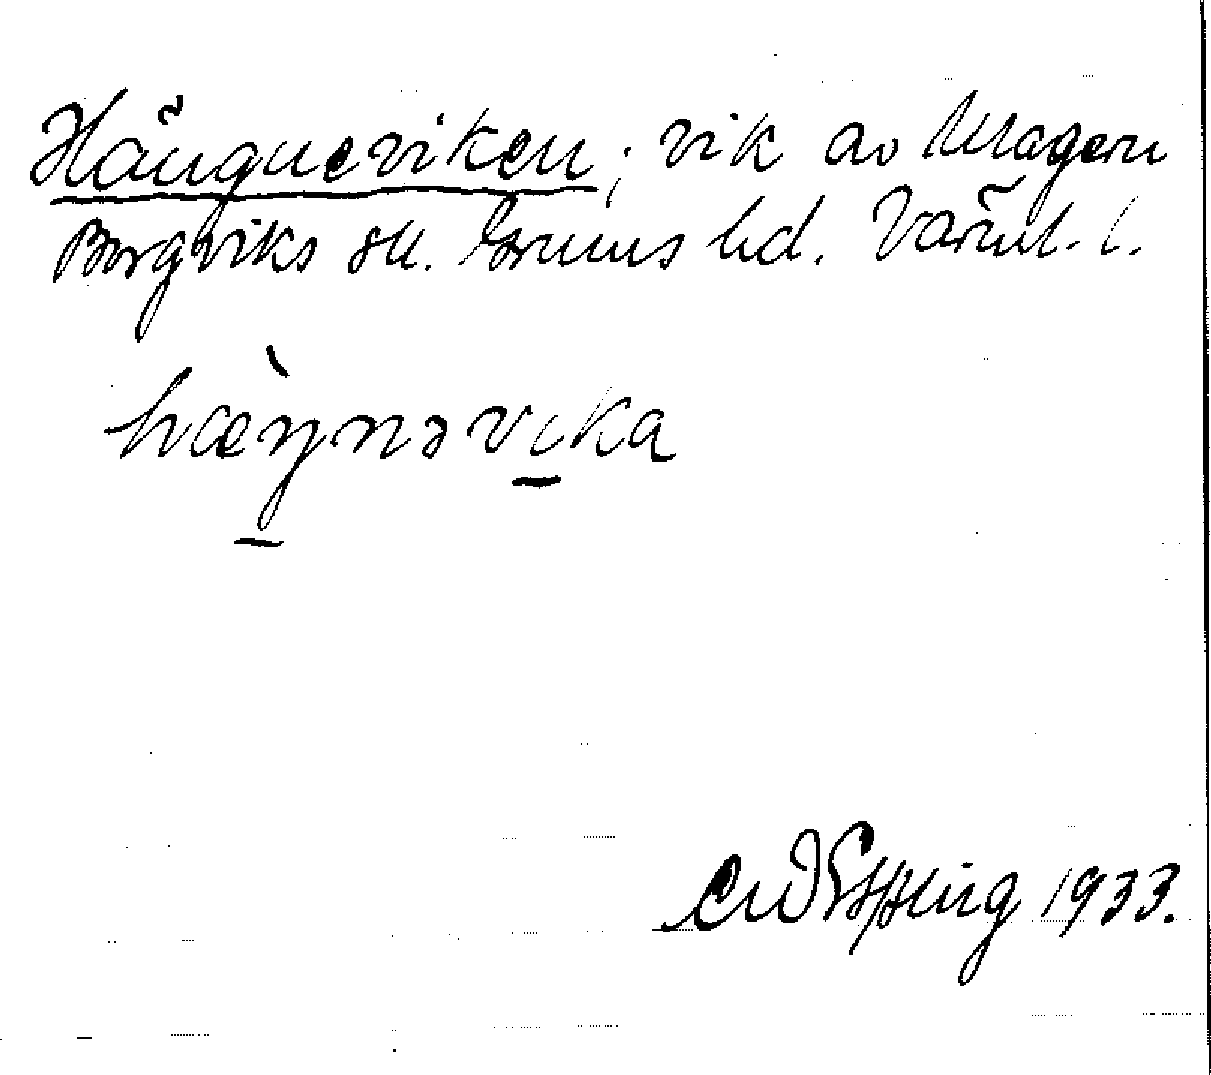 Hängneviken; vik av Magern
Borgviks sn. Grums hd. Värml. l.
hæ̀ŋnəvika
1933.